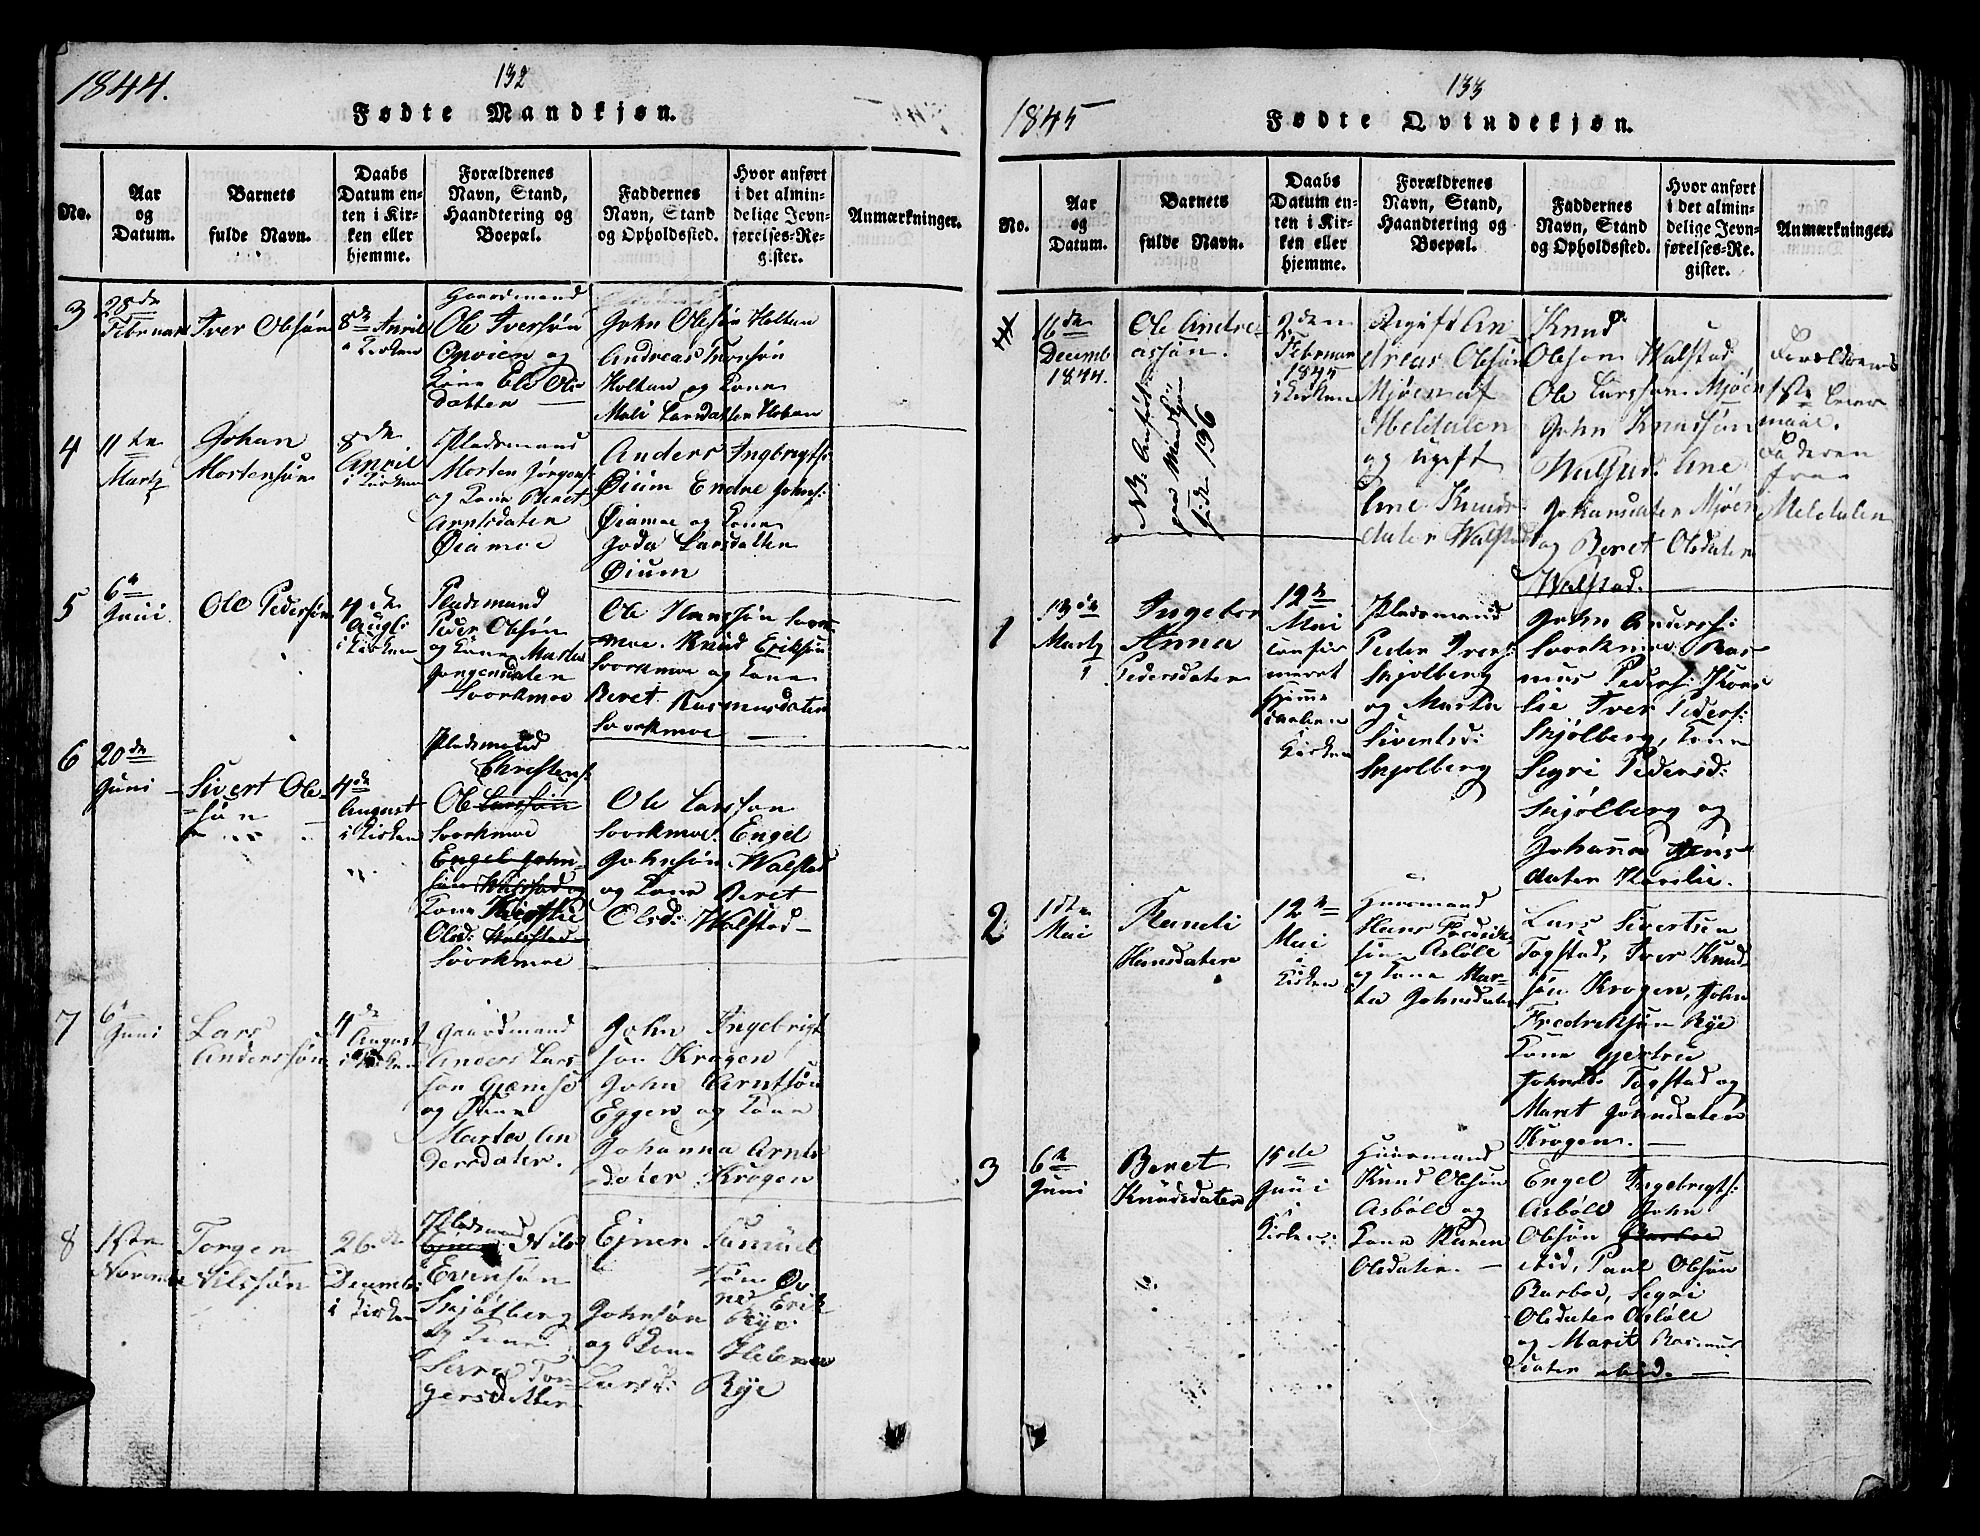 1844.
132
Fødte Mandkjøn.
No.
Aar
og
Datum.
Barnets
fulde Navn.
Daabs
Datum en-
ten i Kir-
ken eller
hjemme.
Forældrenes
Navn, Stand,
Haandtering og
Boepæl.
Faddernes
Navn, Stand
og Opholdssted.
Hvor anført
i det almin-
delige Jevn-
førelses-Re-
gister.
Anmærkninger.
3
28de
Februar
Iver Olesøn
8de April
i Kirken
Gaardmand
Ole Iversøn
og
Kone Eli Ols
datter
John Olesøn Holtan
Andreas
Holtan og Kone
Mali Larsdatter
4
11te
Martz
Johan
Mortensøn
8de
April
i Kirken
Pladsmand
Morten Jørgens:
og Kone Beret
Arntsdater
Øiamoe
Anders Ingbrigts:
Øium Endre Johns:
Øiamoe og Kone
Larsdatter
Øium
5
6te
Juni
Ole Pedersøn
4de
Augt:
i Kirken
Pladsmand
Peder Olesøn
og Kone Marta
Jørgensdater
Svorkmoe
Ole Hanssøn Svork
moe. Knud Eriksøn
Svorkmoe og Kone
Beret Rasmusdater
Svorkmoe
6
20de
Juni
Sivert Ole-
søn
4de
August
i Kirken
Pladsmand
Christens:
Ole Larssøn
Svorkmoe
Engel John
søn Walstad og
Kone Kirstie
Olsd: Walstad
Svorkmoe
Ole Larsson
Svorkmoe. Engel
Johnsøn Walstad
og Kone Beret
Olsd: Walstad
7
6te
Juni
Lars
Anderssøn
4de
August
i Kirken
Gaardmand
Anders Lars
søn
og Kone
Marta An
dersdater.
John Ingebrigt
søn Krogen
John Arntsøn
Eggen og Kone
Johanna Arnts
dater Krogen
8
1ste
Novembr
Torger
Nilssøn
26de
Decemb:
i Kirken
Pladsmand
Nils
Evensøn
Skjølberg
og Kone
Tor-
gersdatter
Ejner Samuel
søn
Erik
Johnsøn Rye
og Kone
Larsd: Rye
1845
133
Fødte Qvindekjøn.
No.
Aar
og
Datum.
Barnets
fulde Navn.
Daabs
Datum en-
ten i Kir-
ken eller
hjemme.
Forældrenes
Navn, Stand,
Haandtering og
Boepæl.
Faddernes
Navn, Stand
og Opholdssted.
Hvor anført
i det almin-
delige Jevn-
førelses-Re-
gister.
Anmærkninger.
16de
Decemb
1844.
Ole Andre
assøn.
NB: Anført
paa Mandkjøn
Side 136
2den
Februar
1845
i Kirken
Ugift An
dreas Olesøn
Mjøen af
Meldalen
og ugift
Ane Knuds
dater Walstad
Knud
Olsøn Walstad
Ole Larssøn Mjøen
John Knudsøn
Walstad. Ane
Johansdater Mjøen
og Beret Olsdater
Walstad.
Forældrenes
1ste Leier
maal.
Faderen
fra
Meldalen
1
13de
Martz
Ingebor
Anna
Pedersdater
12te
Mai
confir
meret
hjemme
daaben
Kirken
Pladsmand
Peder Ivers:
Skjølberg
og Marta
Sivertsd:
Skjølberg
John Anders:
Svorkmoe Ras
mus Peders:
Iver Peders:
Skjølberg, Kone
Segri Pedersd:
Skjølberg og
Johanna Jens
dater
2
1ste
Mai
Randi
Hansdater
12te
Mai
i
Kirken
Huusmand
Hans Fredrik
søn Asbøll
og Kone Mar-
ta Johnsdater
Lars Sivertsen
Togstad, Iver Knud
søn Krogen, John
Fredriksøn Rye
Kone Gjertru
Johnsd: Togstad og
Maret Johnsdater
Krogen.
3
6te
Juni
Beret
Knudsdater
15de
Juni
i
Kirken
Huusmand
Knud Olsøn
Asbøll og
Kone Karen
Olsdater.
Engel Ingebrigts:
Asbøll John
Olsøn
ibid, Paul Olsøn
Barboe, Segri
Olsdater Asbøll
og Marit Rasmus
dater ibid.